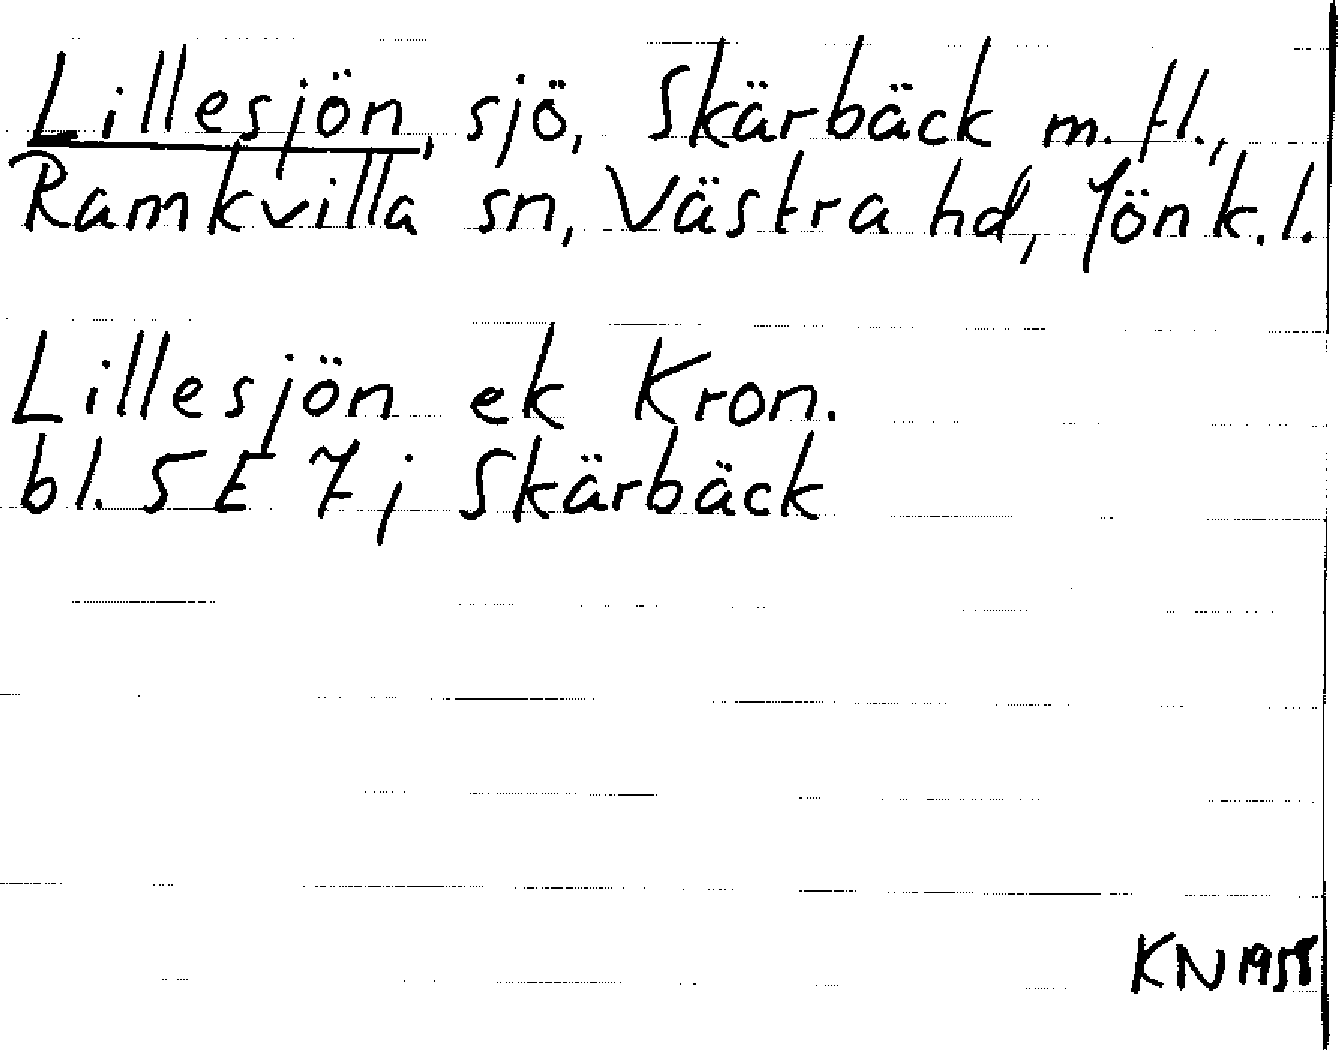 Lillesjön, sjö, Skärbäck m. fl.,
Ramkvilla sn, Västra hd, Jönk. l.
Lillesjön ek Kron.
bl. 5 E 7; Skärbäck
KN 1958